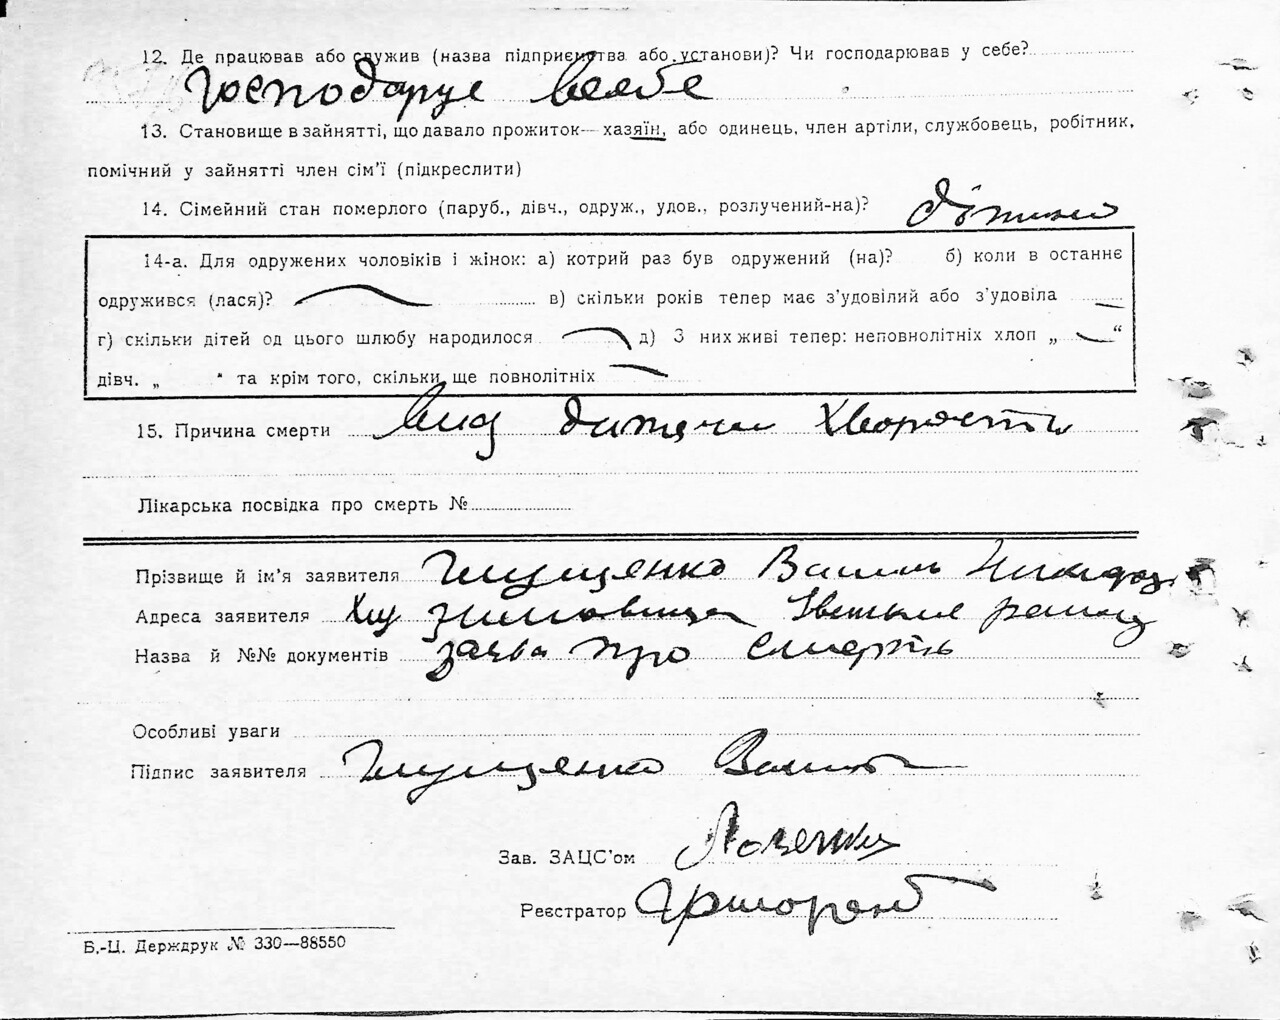 12. Де працював або служив (назва підприємства або установи)? Чи господарював у себе?
Господарує всебе
13. Становище в зайнятті, що давало прожиток— хазяїн, або одинець, член артіли, службовець, робітник,
помічний у зайнятті член сім'ї (підкреслити)
14. Сімейний стан померлого (паруб., дівч., одруж., удов., розлучений-на)? дітина
14-а. Для одружених чоловіків і жінок: а) котрий раз був одружений (на)? б) коли в останнє
одружився (лася)? в) скільки років тепер має з'удовілий або з'удовіла
г) скільки дітей од цього шлюбу народилося д) З них живі тепер: неповнолітніх хлоп „ “
дівч. „ “ та крім того, скільки ще повнолітніх
15. Причина смерти Вид дитячи хворости
Лікарська посвідка про смерть №
Прізвище й ім'я заявителя Глущенко Василь
Адреса заявителя Хут
Назва й №№ документів заява про смерть
Особливі уваги
Підпис заявителя Глущенко Васил
Зав. ЗАЦС'ом
Реєстратор
Б.-Ц. Держдрук № 330—88550